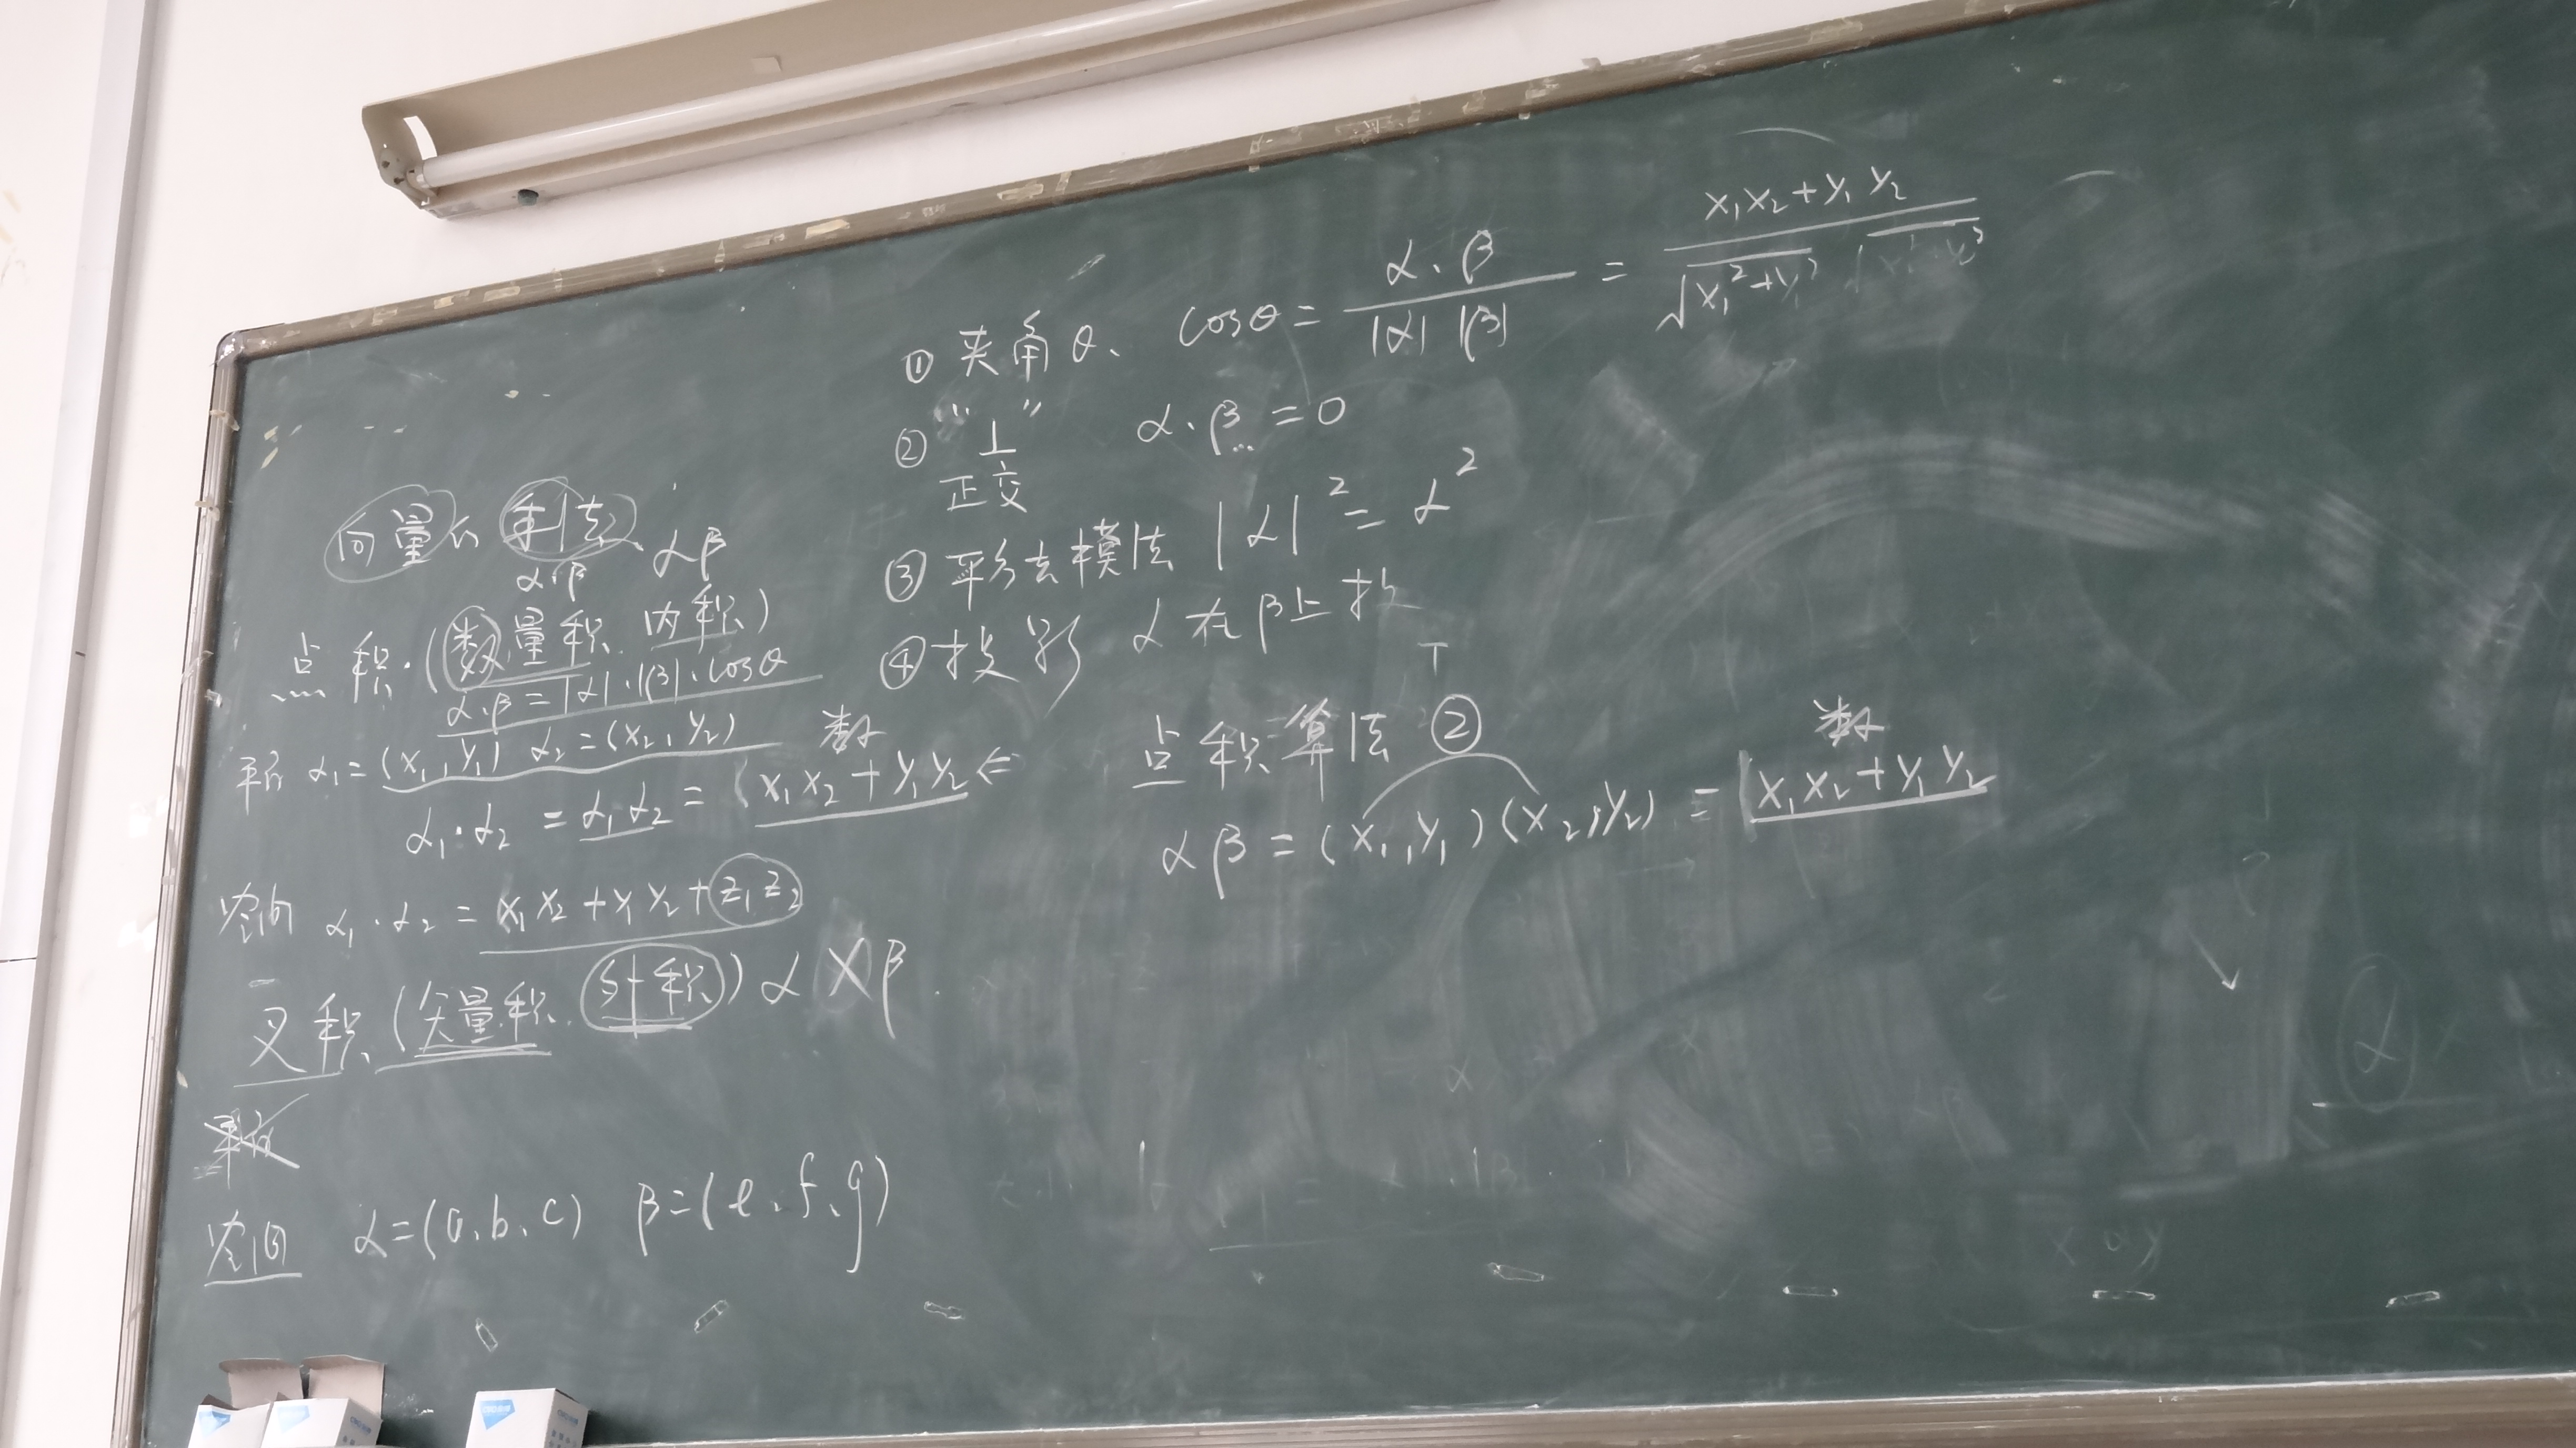 向量的乘法、αβ
α·β
点积.(数量积 内积)
α·β=|α|·|β|·cosθ
平面 α₁=(x₁,y₁) α₂=(x₂,y₂) 数
α₁·α₂ = α₁α₂ = (x₁x₂+y₁y₂ ⇐
空间 α₁·α₂ = x₁x₂+y₁y₂+z₁z₂
叉积(矢量积.外积) α×β
空间 α=(a,b,c) β=(e,f,g)
① 夹角θ、 cosθ = α·β / |α||β| = x₁x₂+y₁y₂ / √x₁²+y₁²
② "⊥" α·β = 0
正交
③ 平方去模法 |α|² = α²
④ 投影 α在β上投
点积算法 ② 数
αβ = (x₁,y₁)(x₂,y₂) = x₁x₂+y₁y₂